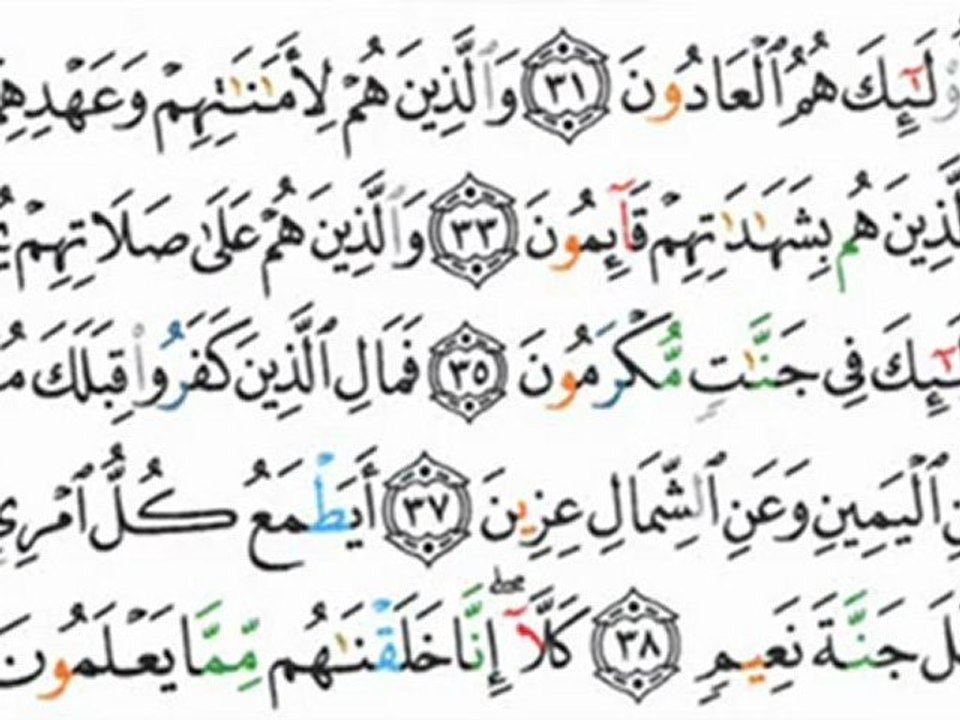 لَٰٓئِكَ هُمُ ٱلْعَادُونَ ٣١ وَٱلَّذِينَ هُمْ لِأَمَٰنَٰتِهِمْ وَعَهْدِهِمْ
ٱلَّذِينَ هُم بِشَهَٰدَٰتِهِمْ قَآئِمُونَ ٣٣ وَٱلَّذِينَ هُمْ عَلَىٰ صَلَاتِهِمْ
لَٰٓئِكَ فِى جَنَّٰتٍ مُّكْرَمُونَ ٣٥ فَمَالِ ٱلَّذِينَ كَفَرُوا۟ قِبَلَكَ
ٱلْيَمِينِ وَعَنِ ٱلشِّمَالِ عِزِينَ ٣٧ أَيَطْمَعُ كُلُّ ٱمْرِئٍ
جَنَّةَ نَعِيمٍ ٣٨ كَلَّآ ۖ إِنَّا خَلَقْنَٰهُم مِّمَّا يَعْلَمُونَ